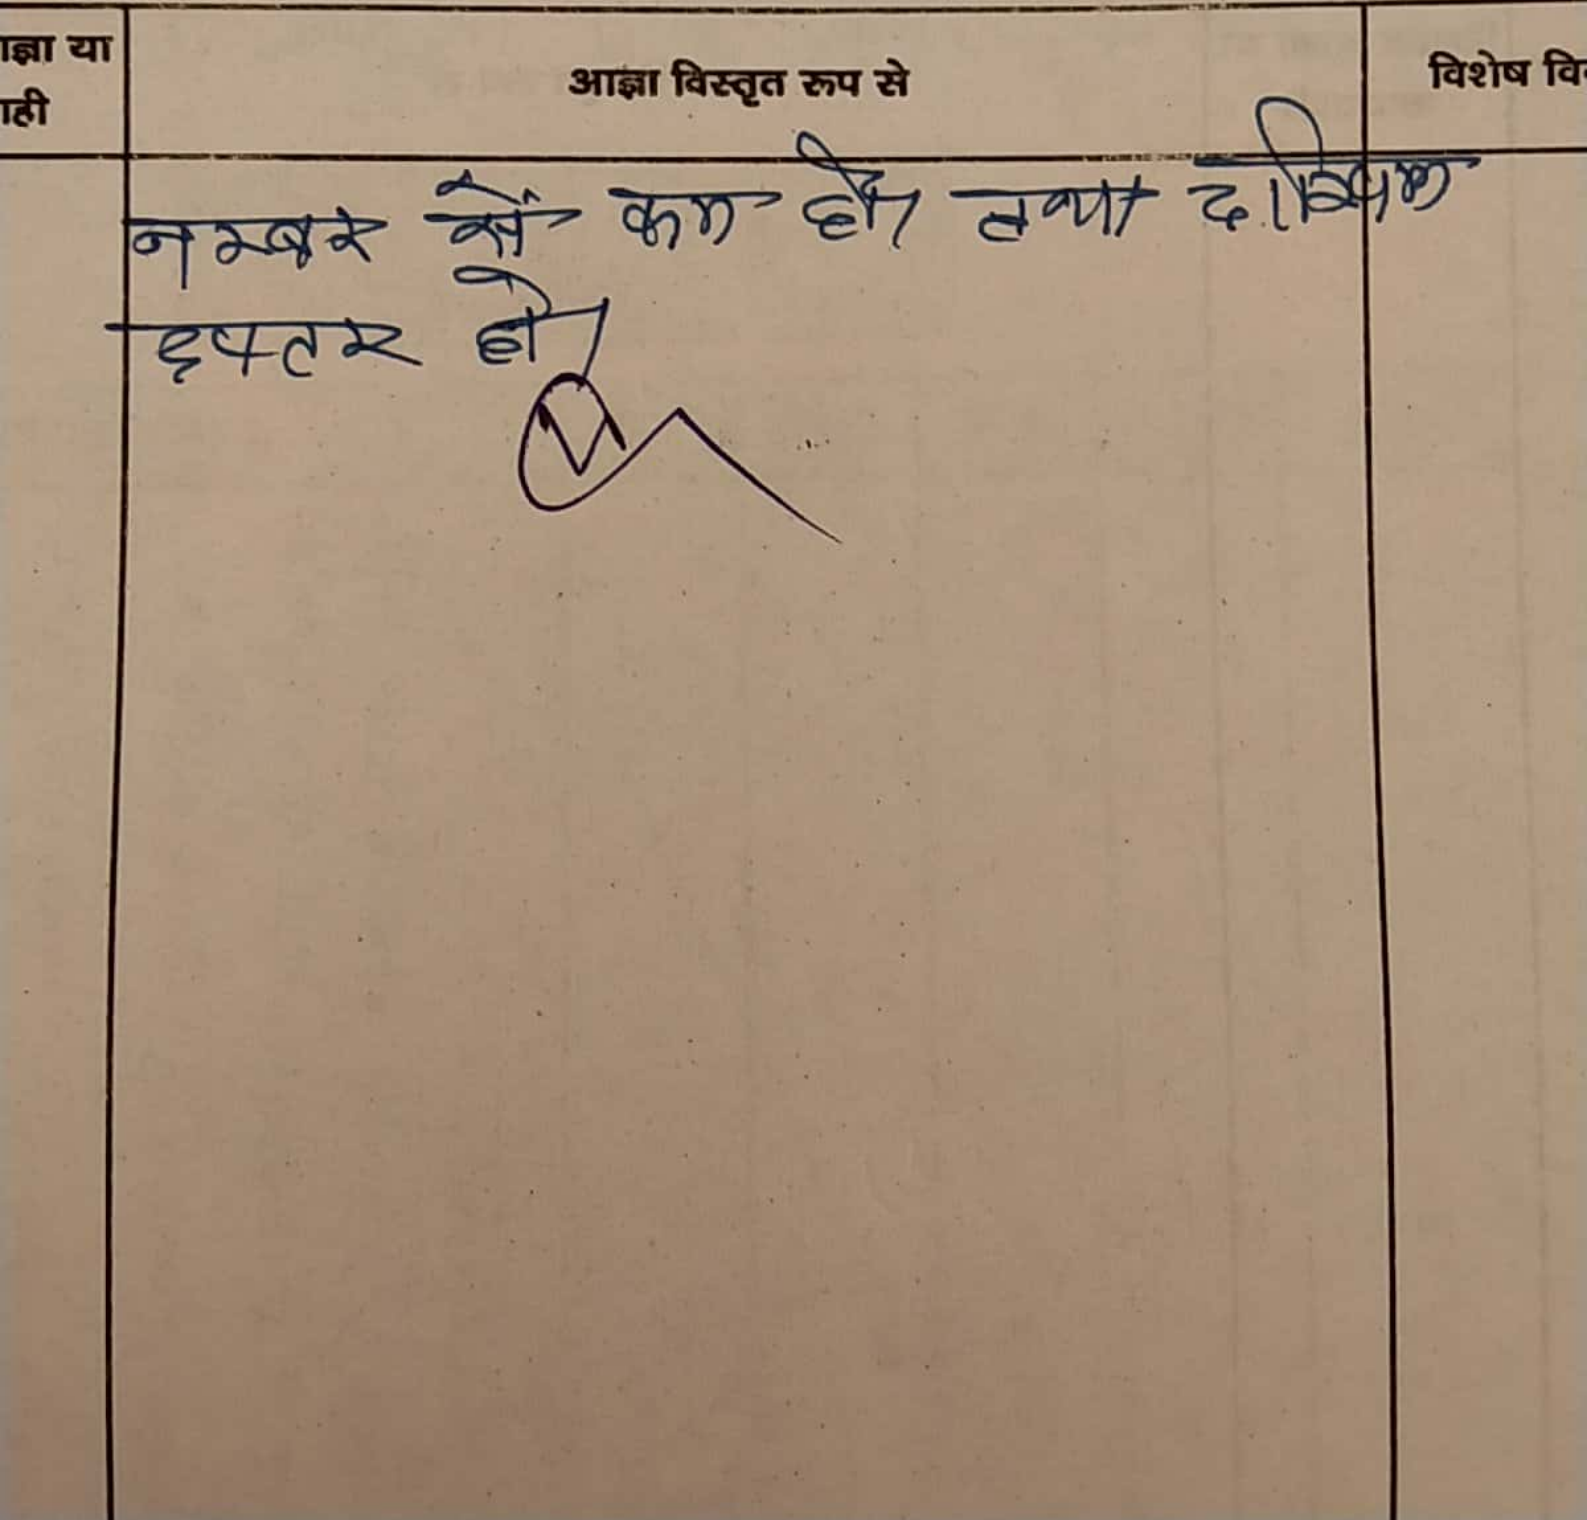 ाज्ञा या
ाही
आज्ञा विस्तृत रूप से
विशेष वि
नम्बर से कम हो। तथा दाखिल
दफ्तर हो।